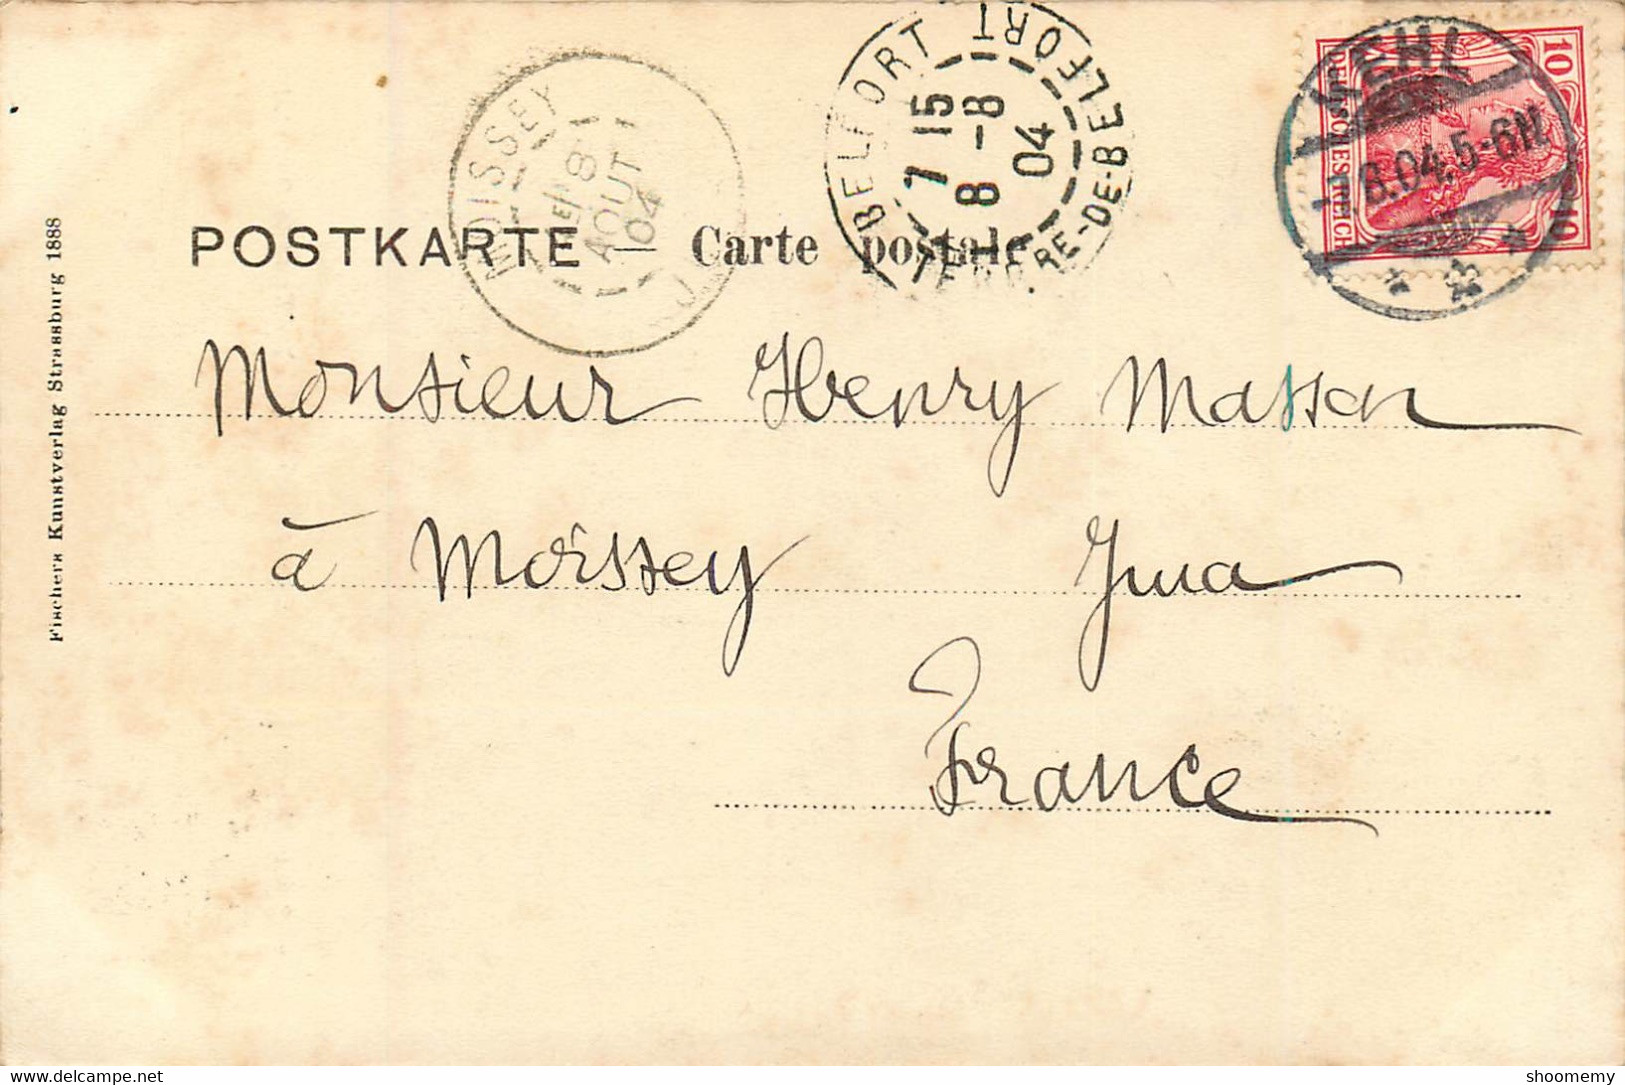 BELFORT
BELFORT
7 15
8 -8
04
TERRE-DE-BELFORT
MOISSEY
8
AOUT
04
J
KEHL
8.04.5-6N.
10
DEUTSCHES REICH
10
POSTKARTE — Carte postale
Monsieur Henry Masson
à Moissey Jura
France
Fischers Kunstverlag Strassburg 1888
shoomemy